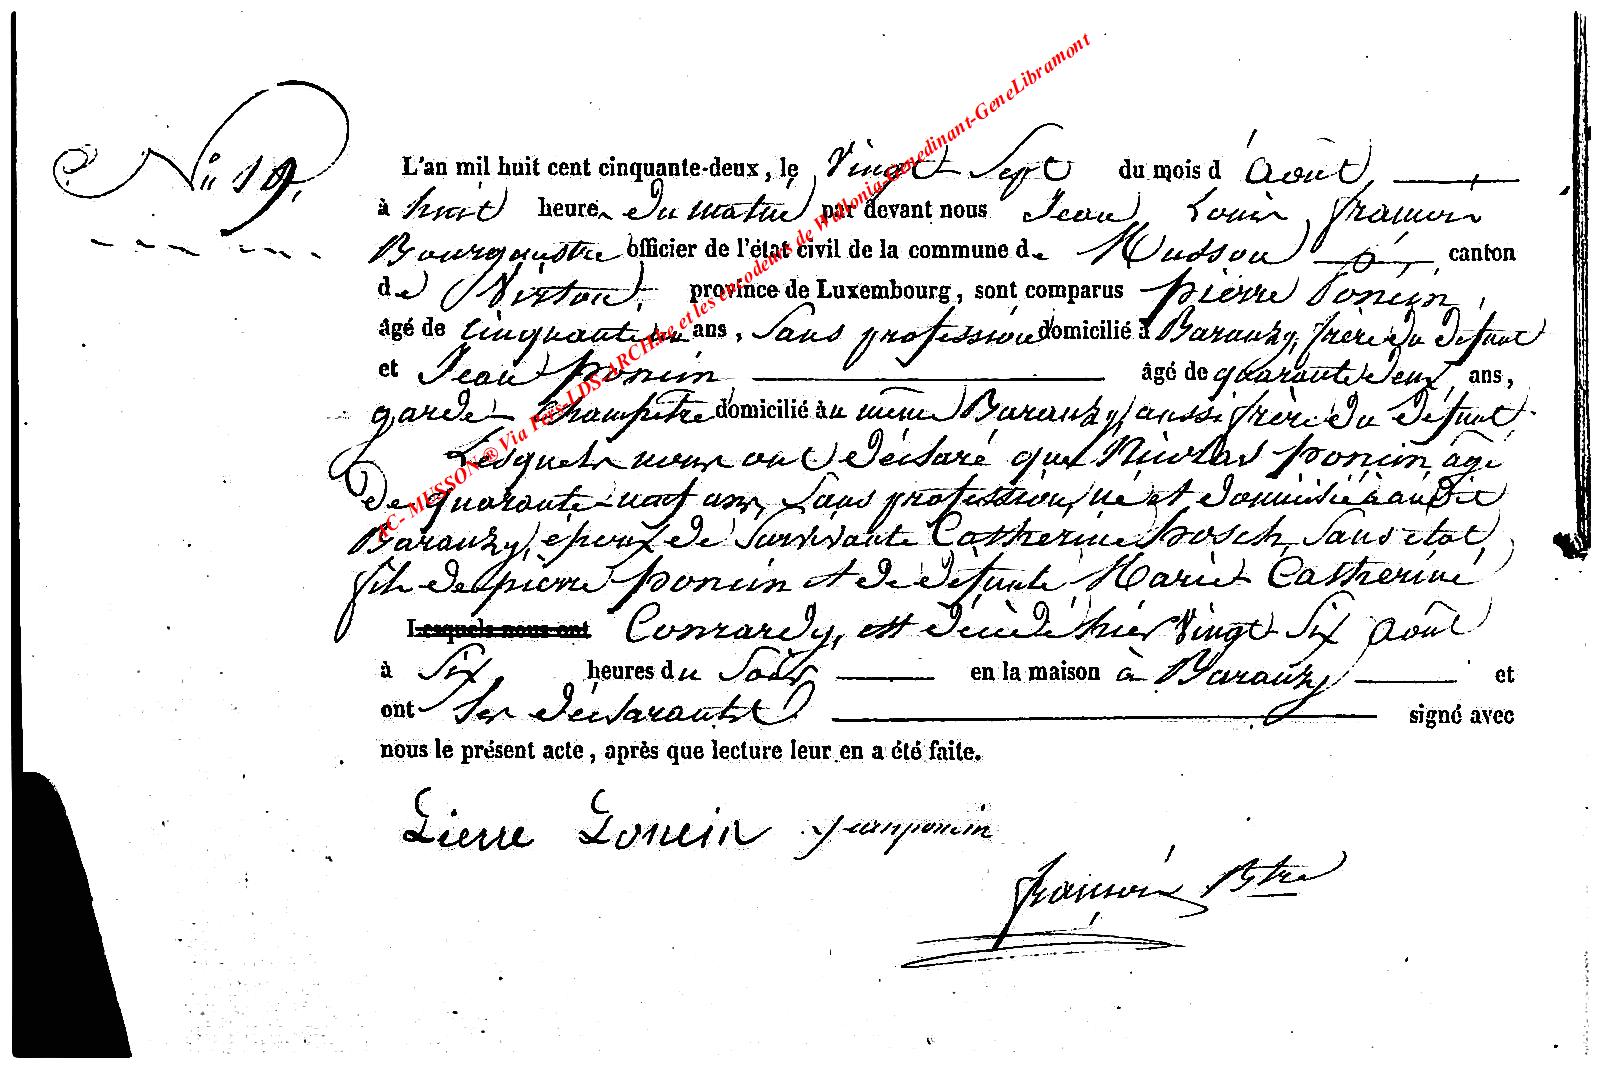 N° 19.
L'an mil huit cent cinquante-deux, le Vingt Sept du mois d'Août,
à huit heures du matin par devant nous Jean Louis françois
Bourgmestre officier de l'état civil de la commune de Musson canton
de Virton, province de Luxembourg, sont comparus pierre Poncin,
âgé de cinquante un ans, Sans profession domicilié à Baranzy, frère du défunt
et Jean Poncin âgé de quarante deux ans,
garde champêtre domicilié au même Baranzy, aussi frère du défunt.
Lesquels nous ont déclaré que Nicolas poncin, âgé
de quarante-neuf ans, Sans profession, né et domicilié audit
Baranzy, époux de Survivante Catherine posch, Sans état,
fils de pierre poncin et de défunte Marie Catherine
Lesquels nous ont Conrardy, est décédé hier Vingt Six Août
à Six heures du Soir en la maison à Baranzy et
ont les déclarants signé avec
nous le présent acte, après que lecture leur en a été faite.
Pierre Poncin Jean poncin
françois Bstre
AC- MUSSON ® Via Pers-LDS-ARCHbe et les encodeurs de Wallonia-Genedinant-GeneLibramont